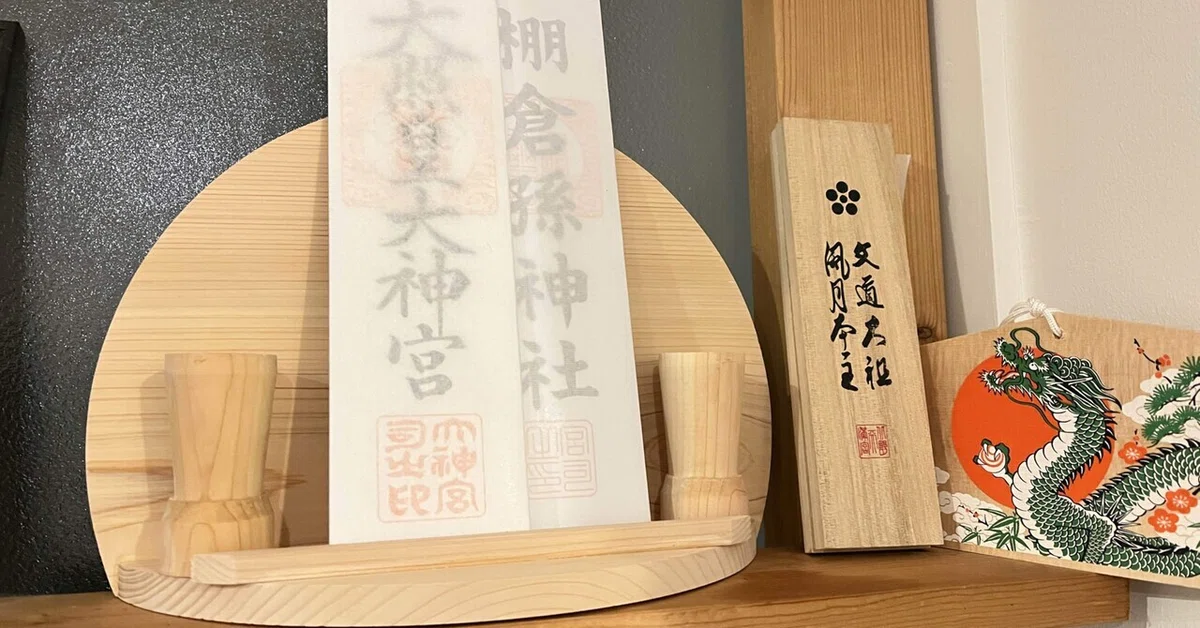 天照皇大神宮
棚倉孫神社
大神宮
司之印
宮司
之印
文道大祖
風月本主